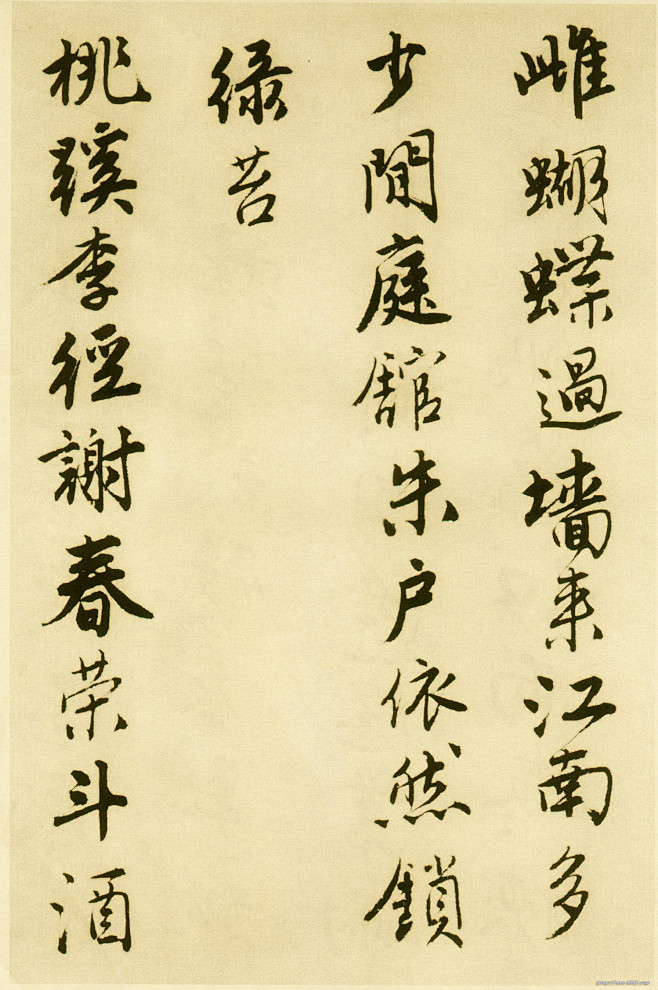 雌蝴蝶過墻来江南多
少閒庭舘朱戶依然鎖
绿苔
桃蹊李徑謝春荣斗酒